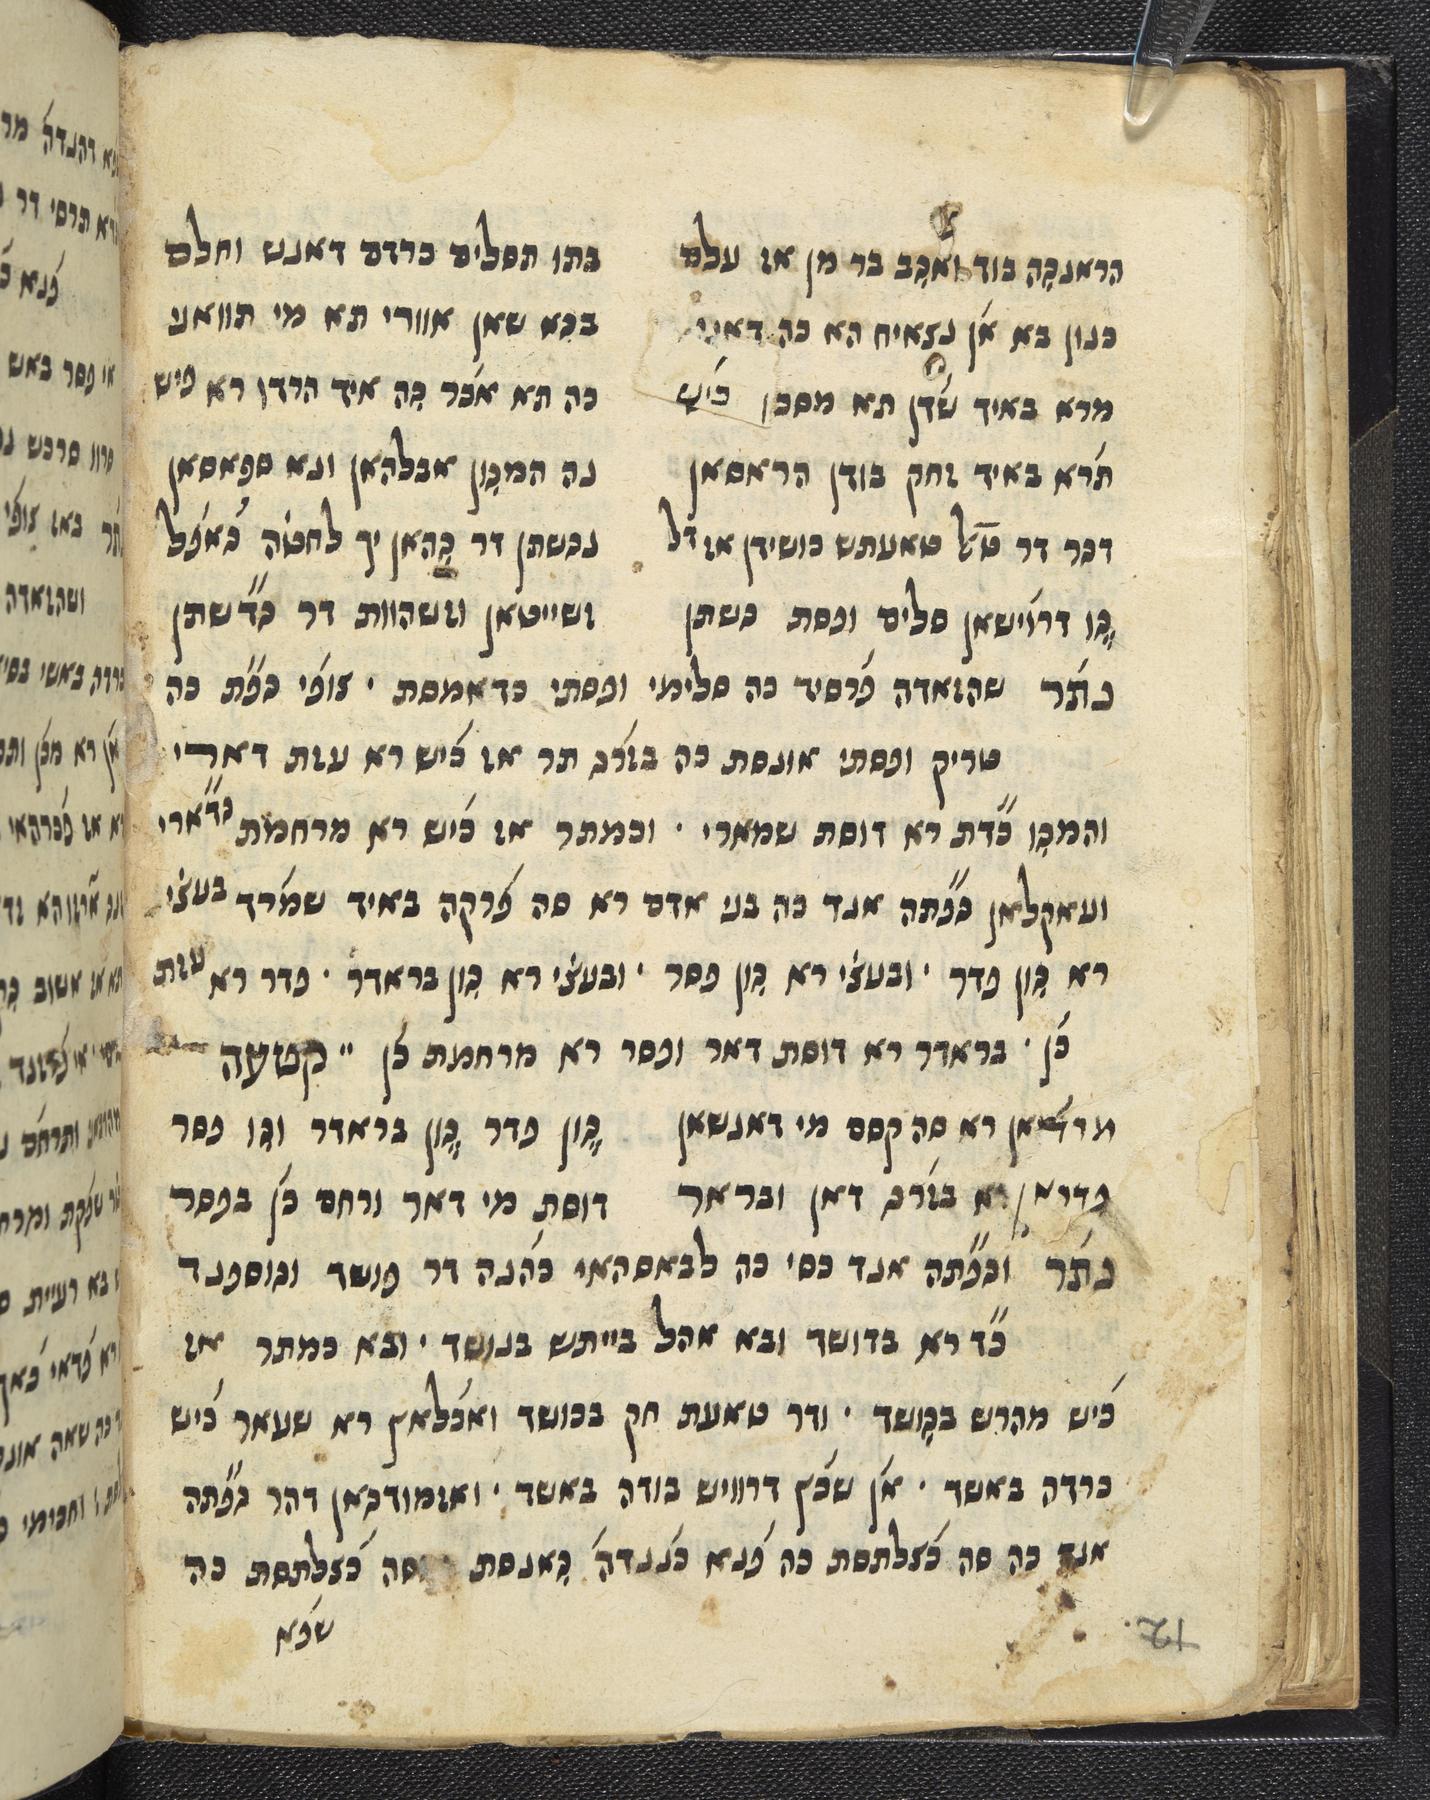 הראנגה בוד ואגב בר מן אז עלם בתו תסלים כרדם דאנש וחלם
כנון בא אן נצאיח הא כה דאני בגא שאן אוורי תא מי תוואני
מרא באיד שדן תא מסכן כיש כה תא אכר גה איד הרדו רא פיש
תרא באיד זחק בודן הראסאן נה המגון אבלהאן ונא ספאסאן
דכר דר טל טאעתש כושידן אז דל נכשתן דר גהאן יך לחטה גאפל
גו דרוישאן סלים ופסת כשתן זשייטאן וזשהוות דר כדשתן
נתר שהזאדה פרסיד כה סלימי ופסתי כדאמסת · צופי גפת כה
טריק ופסתי אונסת כה בזרג תר אז כיש רא עזת דארי
והמגו כדת רא דוסת שמארי · וכמתר אז כיש רא מרחמת כדארי
ועאקלאן גפתה אנד כה בני אדם רא סה פרקה באיד שמרד בעצי
רא גון פדר · ובעצי רא גון פסר · ובעצי רא גון בראדר · פדר רא עזת
כן · בראדר רא דוסת דאר ופסר רא מרחמת כן ״ קטעה
רא סה קסם מי דאנשאן גון פדר גון בראדר וגו פסר
רא בזרג דאן ובראדר דוסת מי דאר ורחם כן בפסר
נתר וגפתה אנד כסי כה לבאסהאי כהנה דר פושד וגוספנד
כד רא בדושד ובא אהל בייתש בנושד · ובא כמתר אז
כיש מהרש בגושד · ודר טאעת חק בכושד ואכלאץ רא שעאר כיש
כרדה באשד · אן שכץ דרוויש בודה באשד · ואזמודגאן דהר גפתה
אנד כה סה כצלתסת כה פנא כננדה גאנסת וסה כצלתסת כה
שפא
12